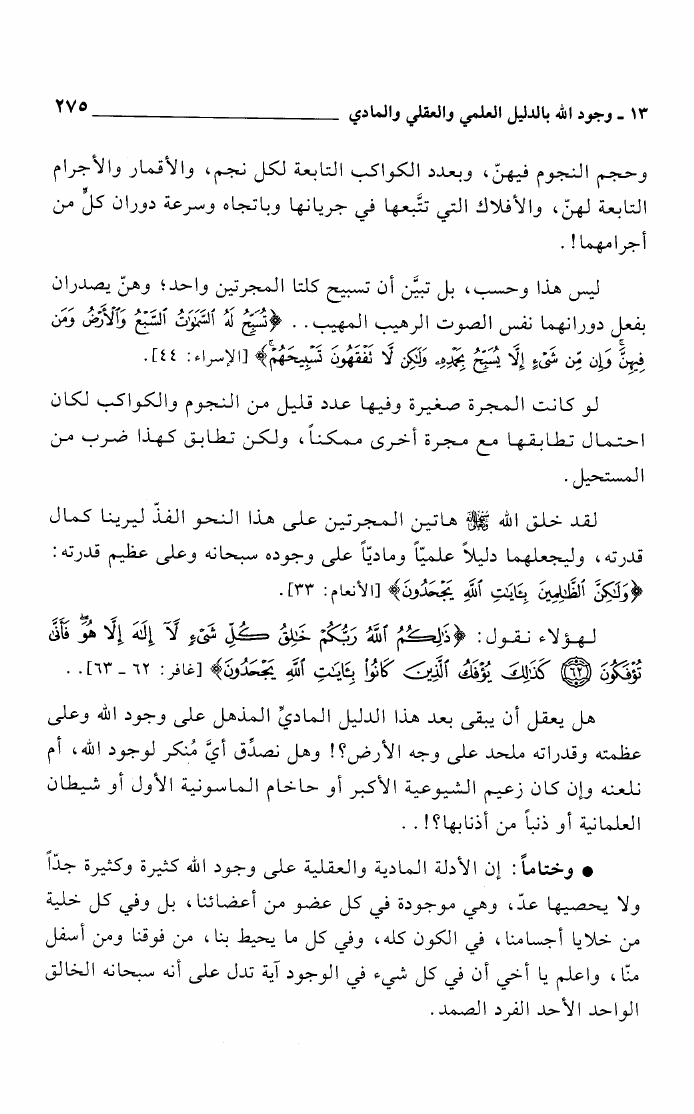 ١٣ ـ وجود الله بالدليل العلمي والعقلي والمادي ٢٧٥
وحجم النجوم فيهنّ، وبعدد الكواكب التابعة لكل نجم، والأقمار والأجرام
التابعة لهنّ، والأفلاك التي تتَّبعها في جريانها وباتجاه وسرعة دوران كلٍّ من
أجرامهما!.
ليس هذا وحسب، بل تبيَّن أن تسبيح كلتا المجرتين واحد؛ وهنّ يصدران
بفعل دورانهما نفس الصوت الرهيب المهيب.. ﴿تُسَبِّحُ لَهُ ٱلسَّمَٰوَٰتُ ٱلسَّبْعُ وَٱلْأَرْضُ وَمَن
فِيهِنَّ ۚ وَإِن مِّن شَىْءٍ إِلَّا يُسَبِّحُ بِحَمْدِهِۦ وَلَٰكِن لَّا تَفْقَهُونَ تَسْبِيحَهُمْ ۗ﴾ [الإسراء: ٤٤].
لو كانت المجرة صغيرة وفيها عدد قليل من النجوم والكواكب لكان
احتمال تطابقها مع مجرة أخرى ممكناً، ولكن تطابق كهذا ضرب من
المستحيل.
لقد خلق الله ﷻ هاتين المجرتين على هذا النحو الفذّ ليرينا كمال
قدرته، وليجعلهما دليلاً علميّاً وماديّاً على وجوده سبحانه وعلى عظيم قدرته:
﴿وَلَٰكِنَّ ٱلظَّٰلِمِينَ بِـَٔايَٰتِ ٱللَّهِ يَجْحَدُونَ﴾ [الأنعام: ٣٣].
لهؤلاء نقول: ﴿ذَٰلِكُمُ ٱللَّهُ رَبُّكُمْ خَٰلِقُ كُلِّ شَىْءٍ لَّآ إِلَٰهَ إِلَّا هُوَ ۖ فَأَنَّىٰ
تُؤْفَكُونَ ٦٢ كَذَٰلِكَ يُؤْفَكُ ٱلَّذِينَ كَانُوا۟ بِـَٔايَٰتِ ٱللَّهِ يَجْحَدُونَ﴾ [غافر: ٦٢ ـ ٦٣]..
هل يعقل أن يبقى بعد هذا الدليل الماديِّ المذهل على وجود الله وعلى
عظمته وقدراته ملحد على وجه الأرض؟! وهل نصدِّق أيَّ مُنكر لوجود الله، أم
نلعنه وإن كان زعيم الشيوعية الأكبر أو حاخام الماسونية الأول أو شيطان
العلمانية أو ذنباً من أذنابها؟!..
● وختاماً: إن الأدلة المادية والعقلية على وجود الله كثيرة وكثيرة جدّاً
ولا يحصيها عدّ، وهي موجودة في كل عضو من أعضائنا، بل وفي كل خلية
من خلايا أجسامنا، في الكون كله، وفي كل ما يحيط بنا، من فوقنا ومن أسفل
منّا، واعلم يا أخي أن في كل شيء في الوجود آية تدل على أنه سبحانه الخالق
الواحد الأحد الفرد الصمد.